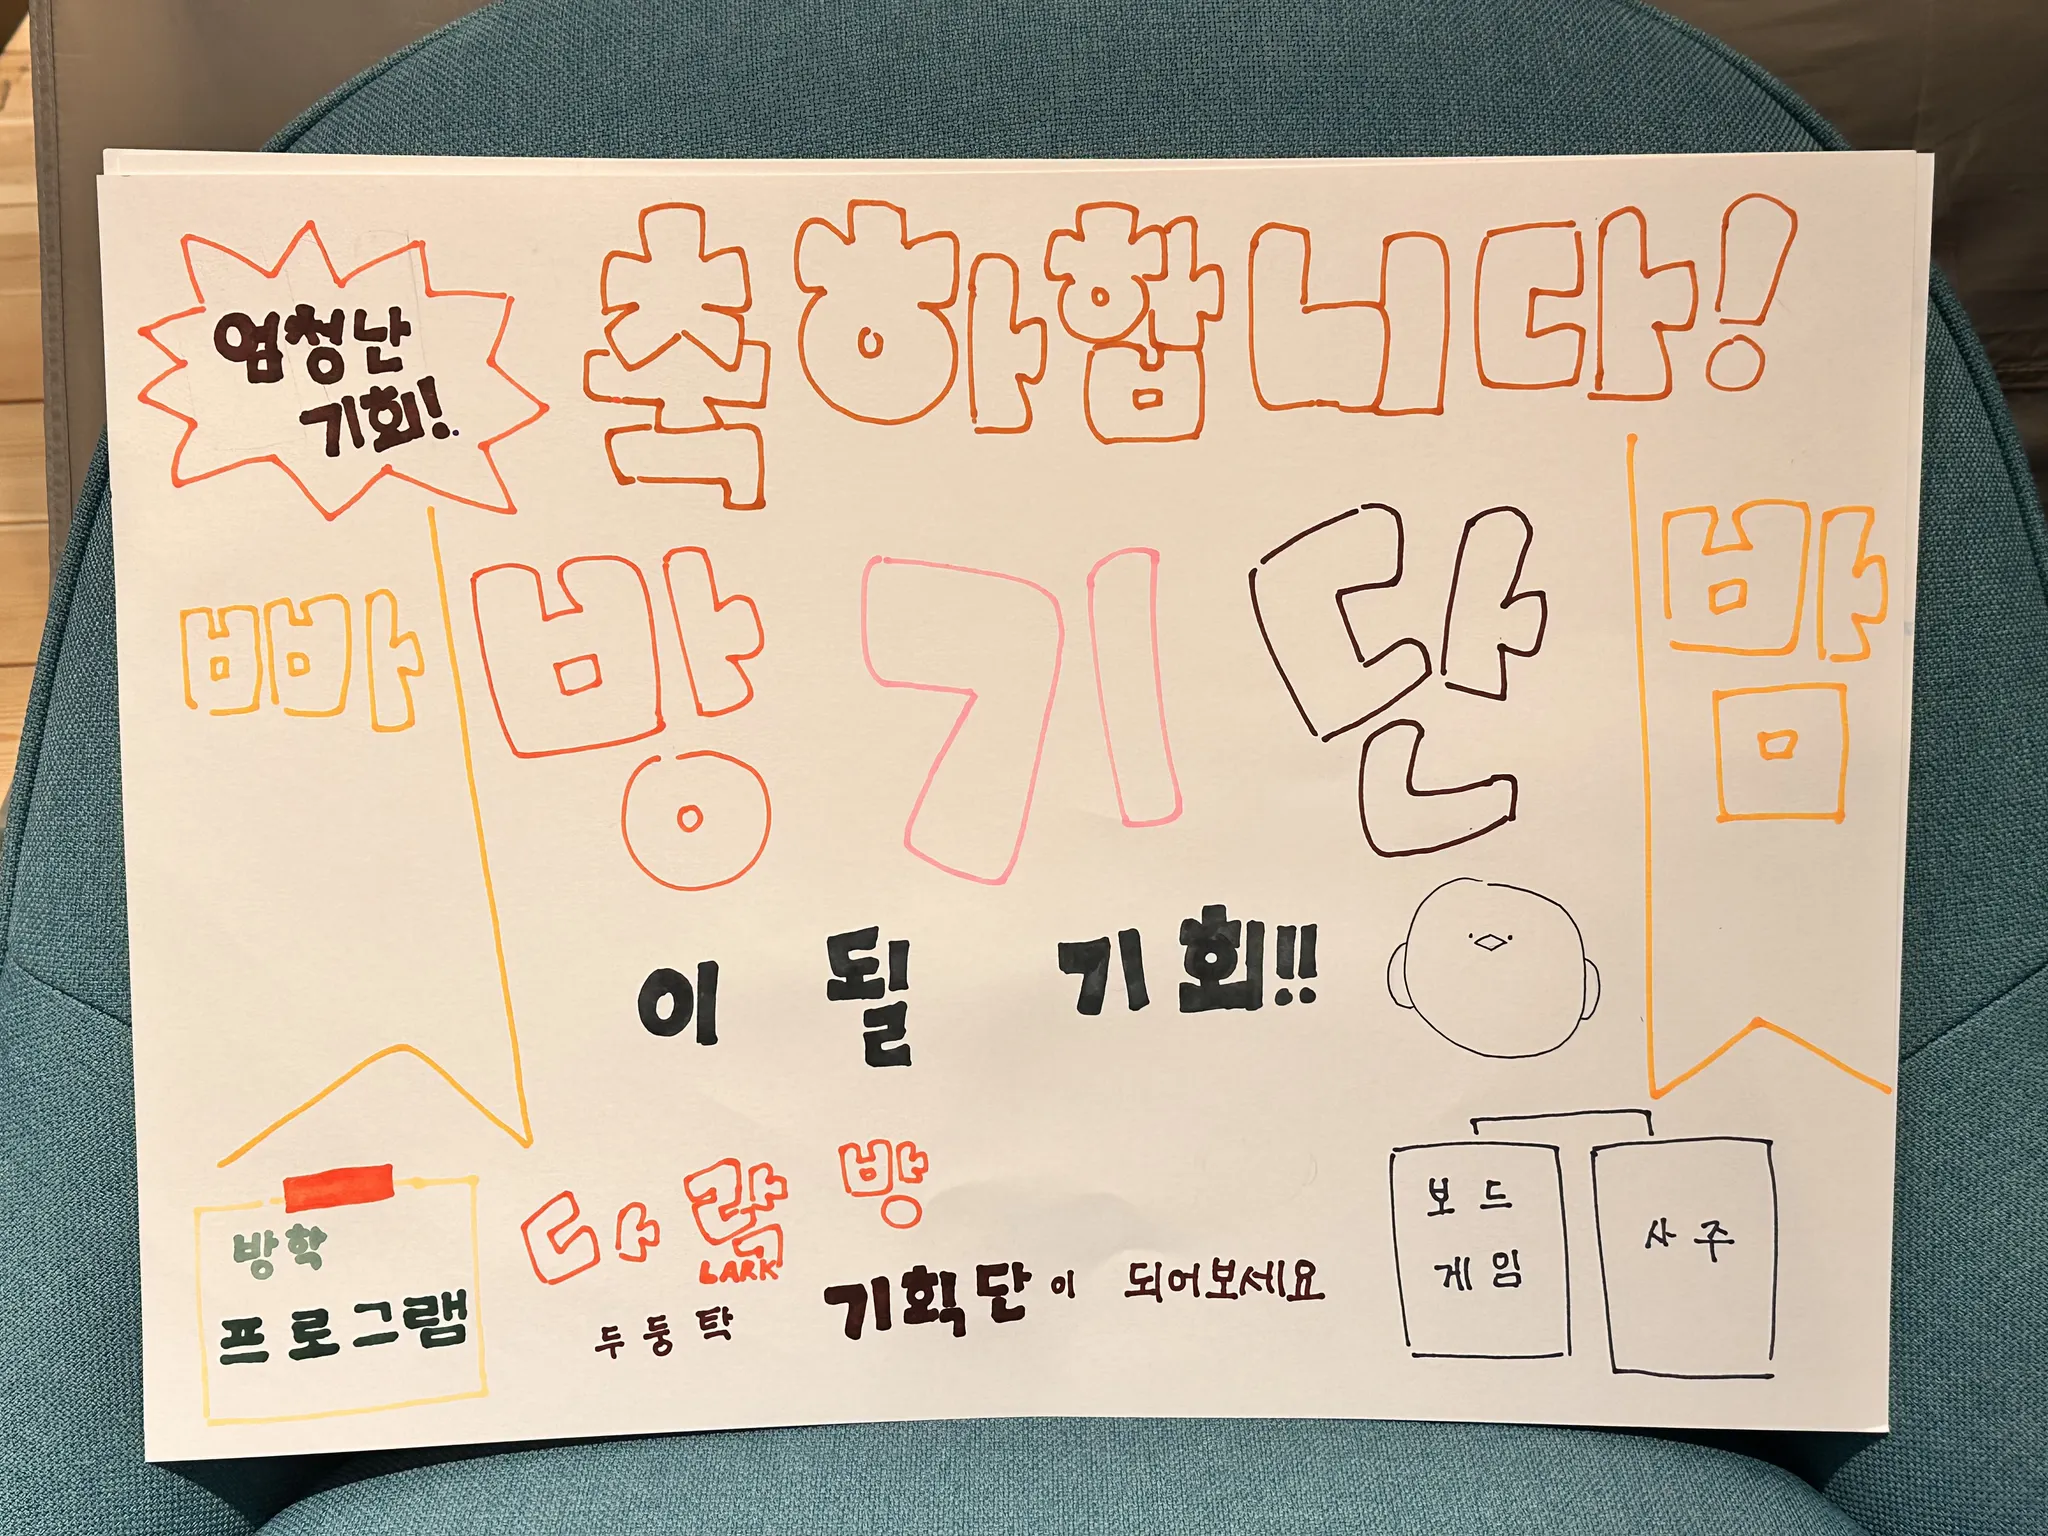 엄청난
기회!
축하합니다!
빠
방기단
밤
이 될 기회!!
방학
프로그램
다락방
LARK
두둥탁
기획단이 되어보세요
보드
게임
사주